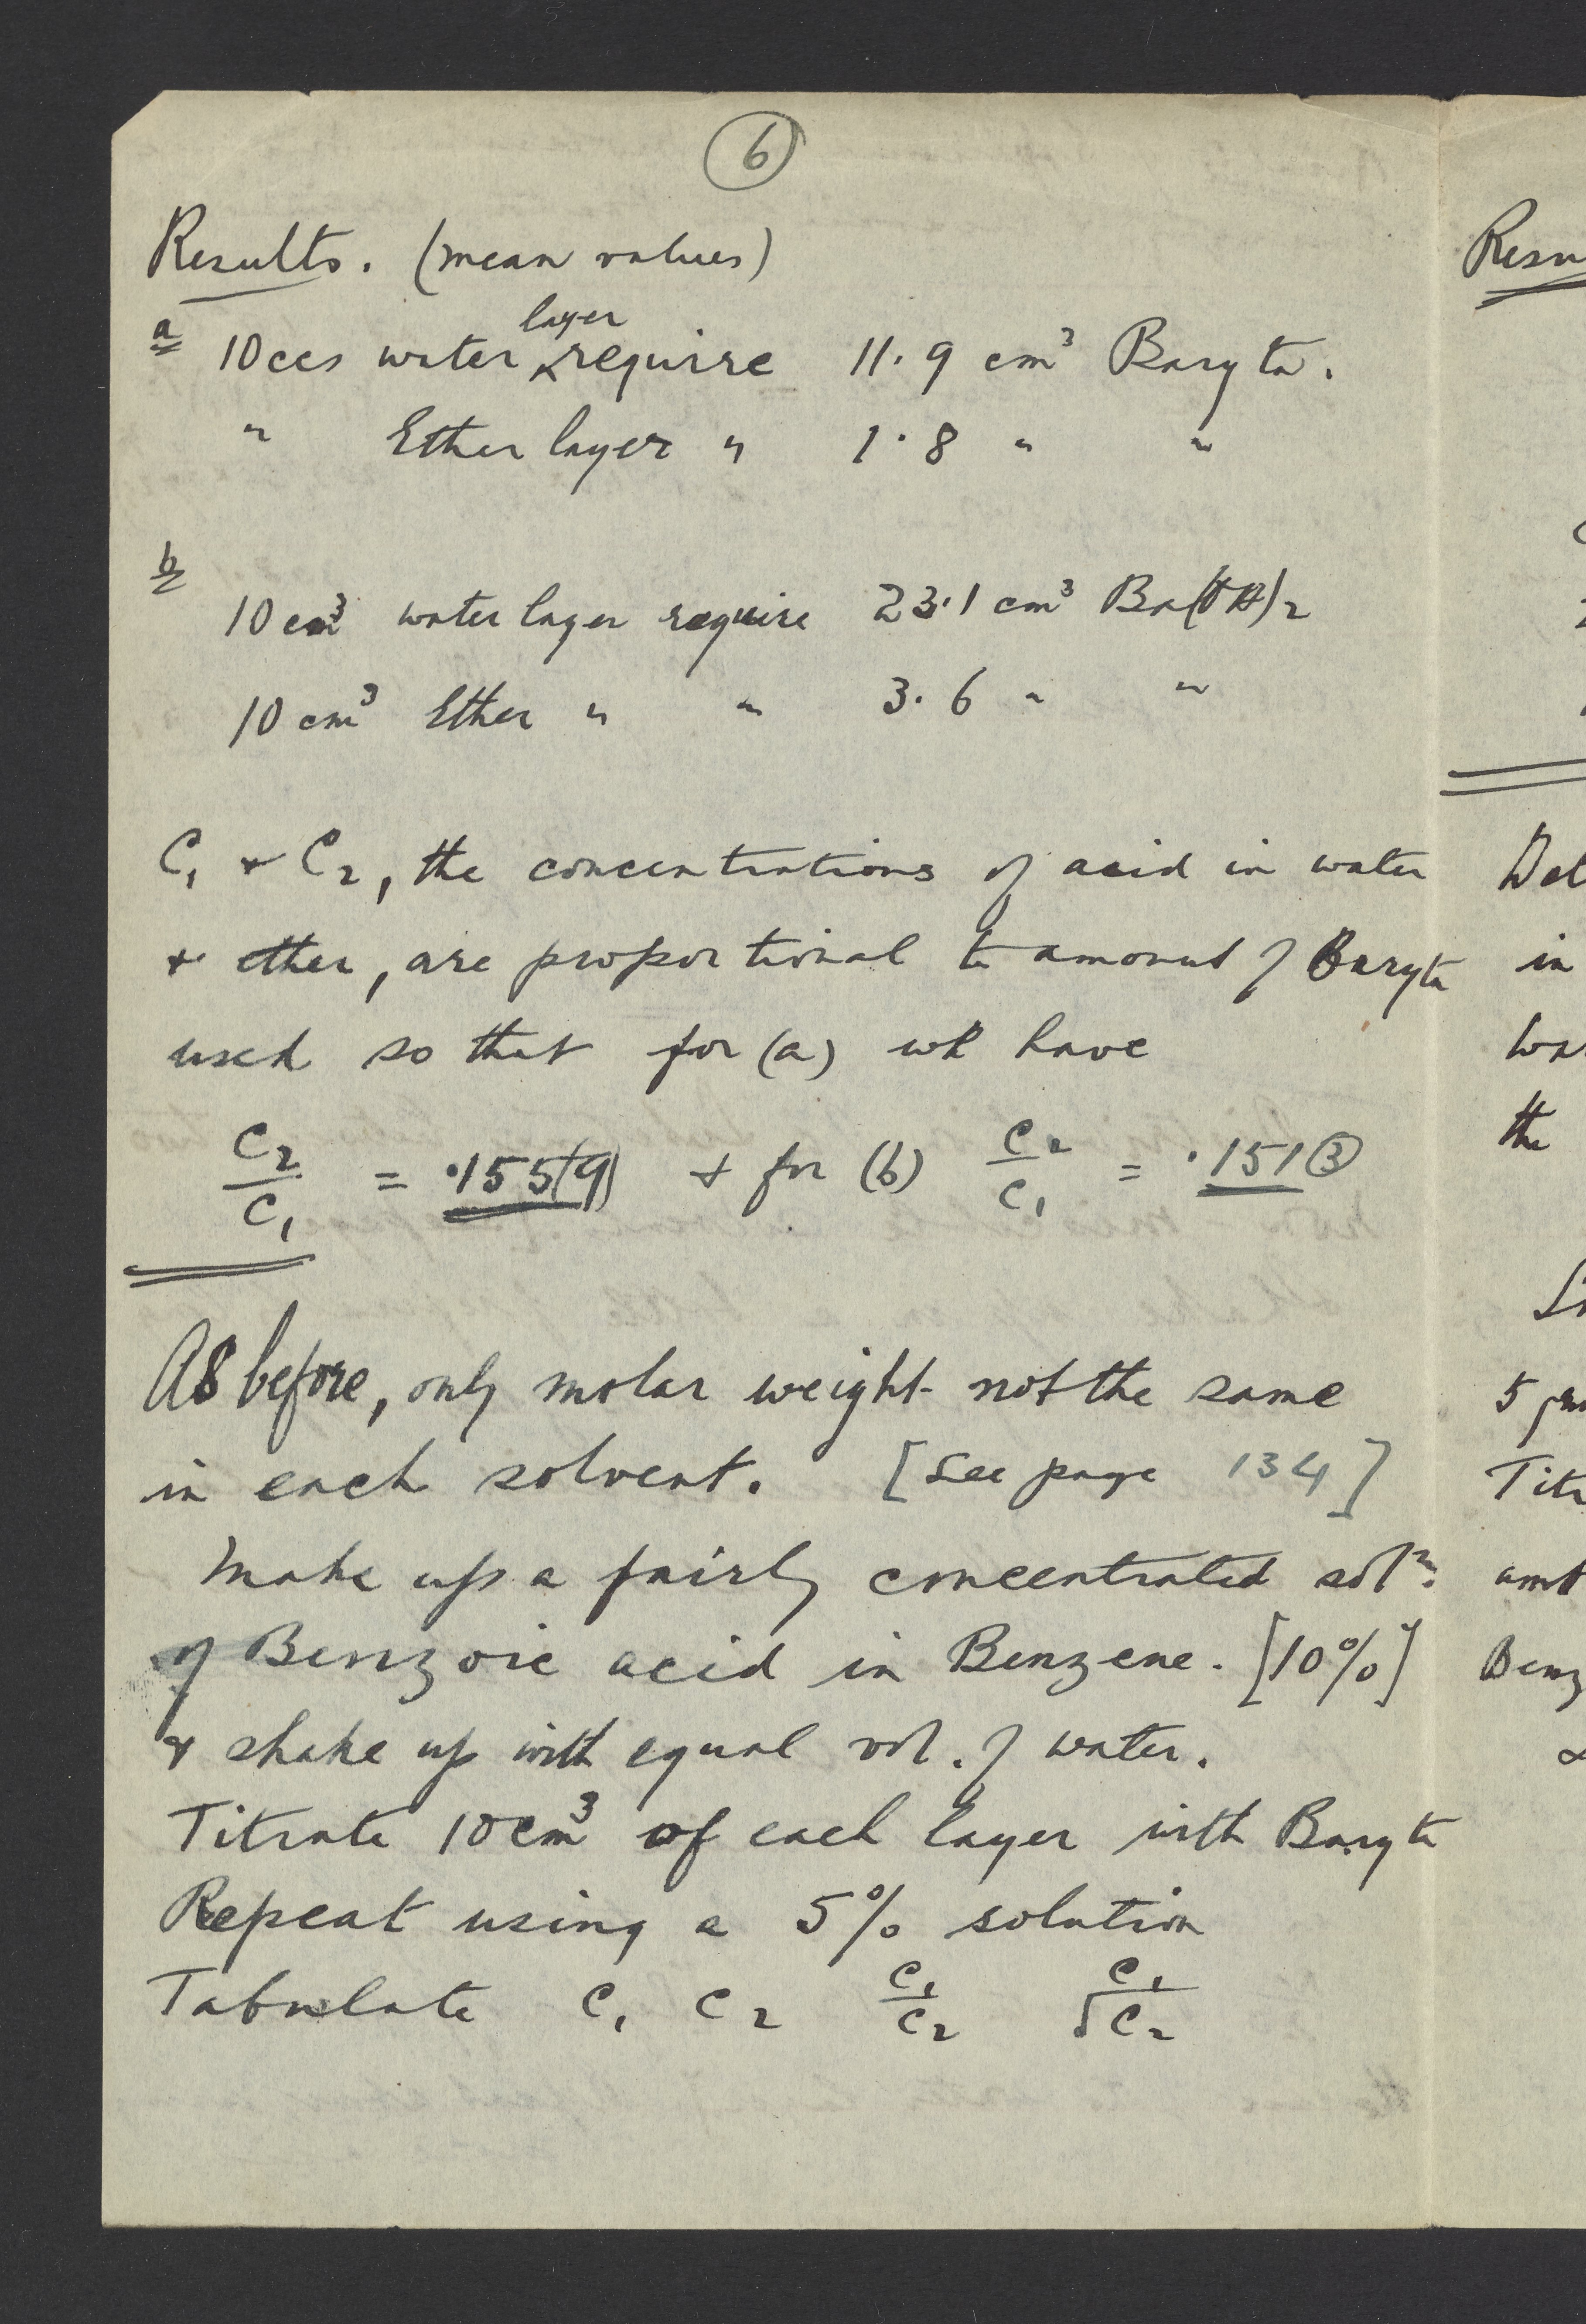 6
Results. (mean values)
a 10ccs water layer require 11.9 cm³ Baryta.
" Ether layer " 1.8 " "
b
10 cm³ water layer require 23.1 cm³ Ba(OH)₂
10 cm³ Ether " " 3.6 " "
C₁ + C₂, the concentrations of acid in water
+ ether, are proportional to amount of Baryta
used so that for (a) we have
C₂/C₁ = .155(9) + for (b) C₂/C₁ = .151(3)
As before, only molar weight not the same
in each solvent. [See page 134]
Make up a fairly concentrated solⁿ.
of Benzoic acid in Benzene. [10%]
+ shake up with equal vol. of water.
Titrate 10 cm³ of each layer with Baryta
Repeat using a 5% solution
Tabulate C₁ C₂ C₁/C₂ C₁/√C₂
Resu
Det
in
the
5
Titr
amt
Benz